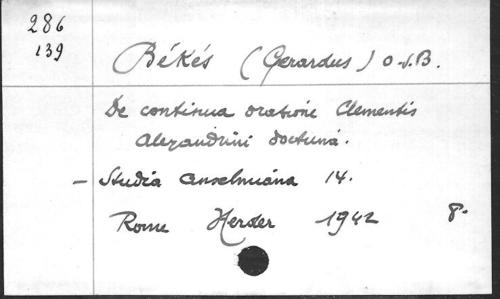 286
139
Békés (Gerardus) O.S.B.
De continua oratione Clementis
Alexandrini doctrina.
- Studia Anselmiana 14.
Rome Herder 1942 8°